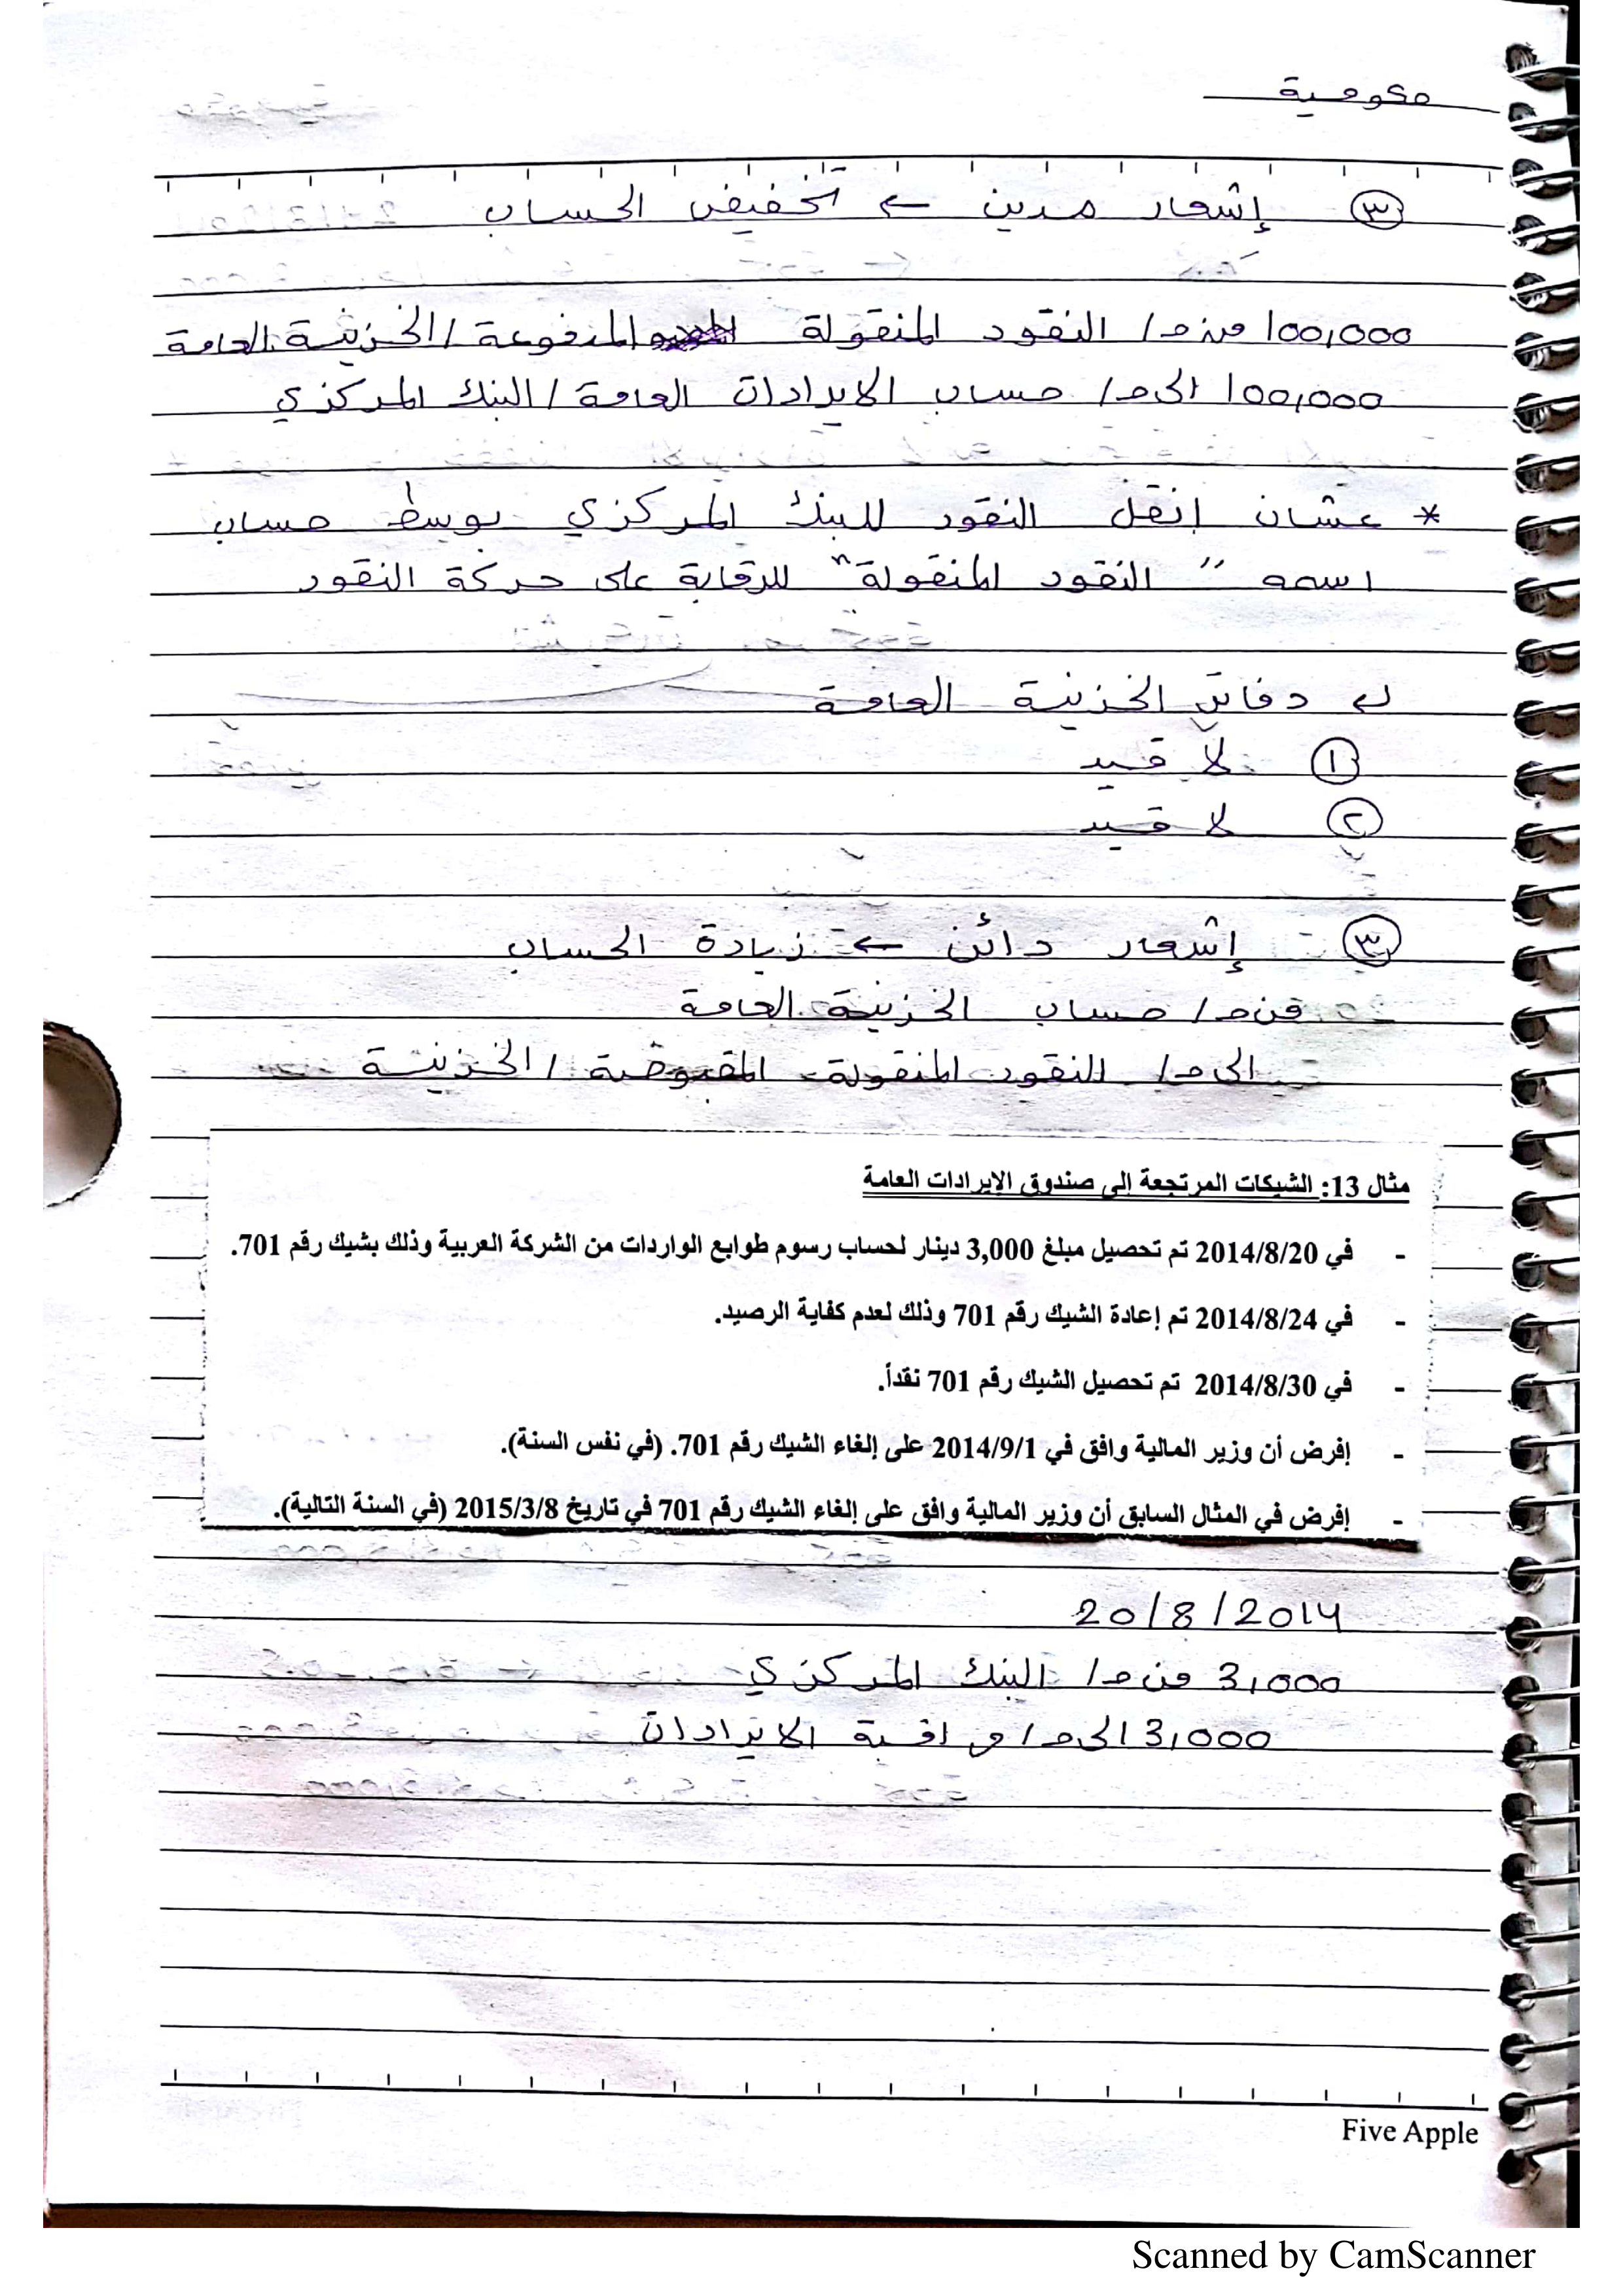 حكومية
③ إشعار مدين ← تخفيض الحساب
100,000 من ح/ النقود المنقولة المدفوعة / الخزينة العامة
100,000 الى ح/ حساب الايرادات العامة / البنك المركزي
* عشان انقل النقود للبنك المركزي بوسط حساب
اسمه " النقود المنقولة" للرقابة على حركة النقود
دفاتر الخزينة العامة
① لا قيد
② لا قيد
③ إشعار دائن ← زيادة الحساب
من ح/ حساب الخزينة العامة
الى ح/ النقود المنقولة المقبوضة / الخزينة
مثال 13: الشيكات المرتجعة إلى صندوق الإيرادات العامة
- في 2014/8/20 تم تحصيل مبلغ 3,000 دينار لحساب رسوم طوابع الواردات من الشركة العربية وذلك بشيك رقم 701.
- في 2014/8/24 تم إعادة الشيك رقم 701 وذلك لعدم كفاية الرصيد.
- في 2014/8/30 تم تحصيل الشيك رقم 701 نقداً.
- إفرض أن وزير المالية وافق في 2014/9/1 على إلغاء الشيك رقم 701. (في نفس السنة).
- إفرض في المثال السابق أن وزير المالية وافق على إلغاء الشيك رقم 701 في تاريخ 2015/3/8 (في السنة التالية).
20/8/2014
3,000 من ح/ البنك المركزي
3,000 الى ح/ مراقبة الايرادات
Five Apple
Scanned by CamScanner